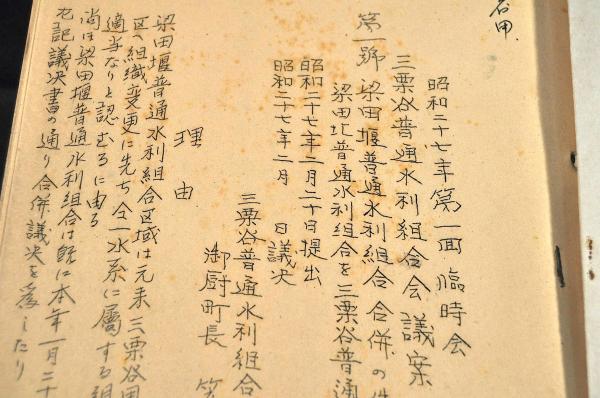 昭和二十七年第一回臨時会
三栗谷普通水利組合会議案
第一號 梁田堰普通水利組合合併の件
梁田堰普通水利組合を三栗谷普通
昭和二十七年二月二十日提出
昭和二十七年二月 日議決
三栗谷普通水利組合
御厨町長
理由
梁田堰普通水利組合区域は元来三栗谷用
区へ組織変更に先ち仝一水系に属する組
適当なりと認むるに由る
尚ほ梁田堰普通水利組合は既に本年一月二十
左記議決書の通り合併議決を為したり